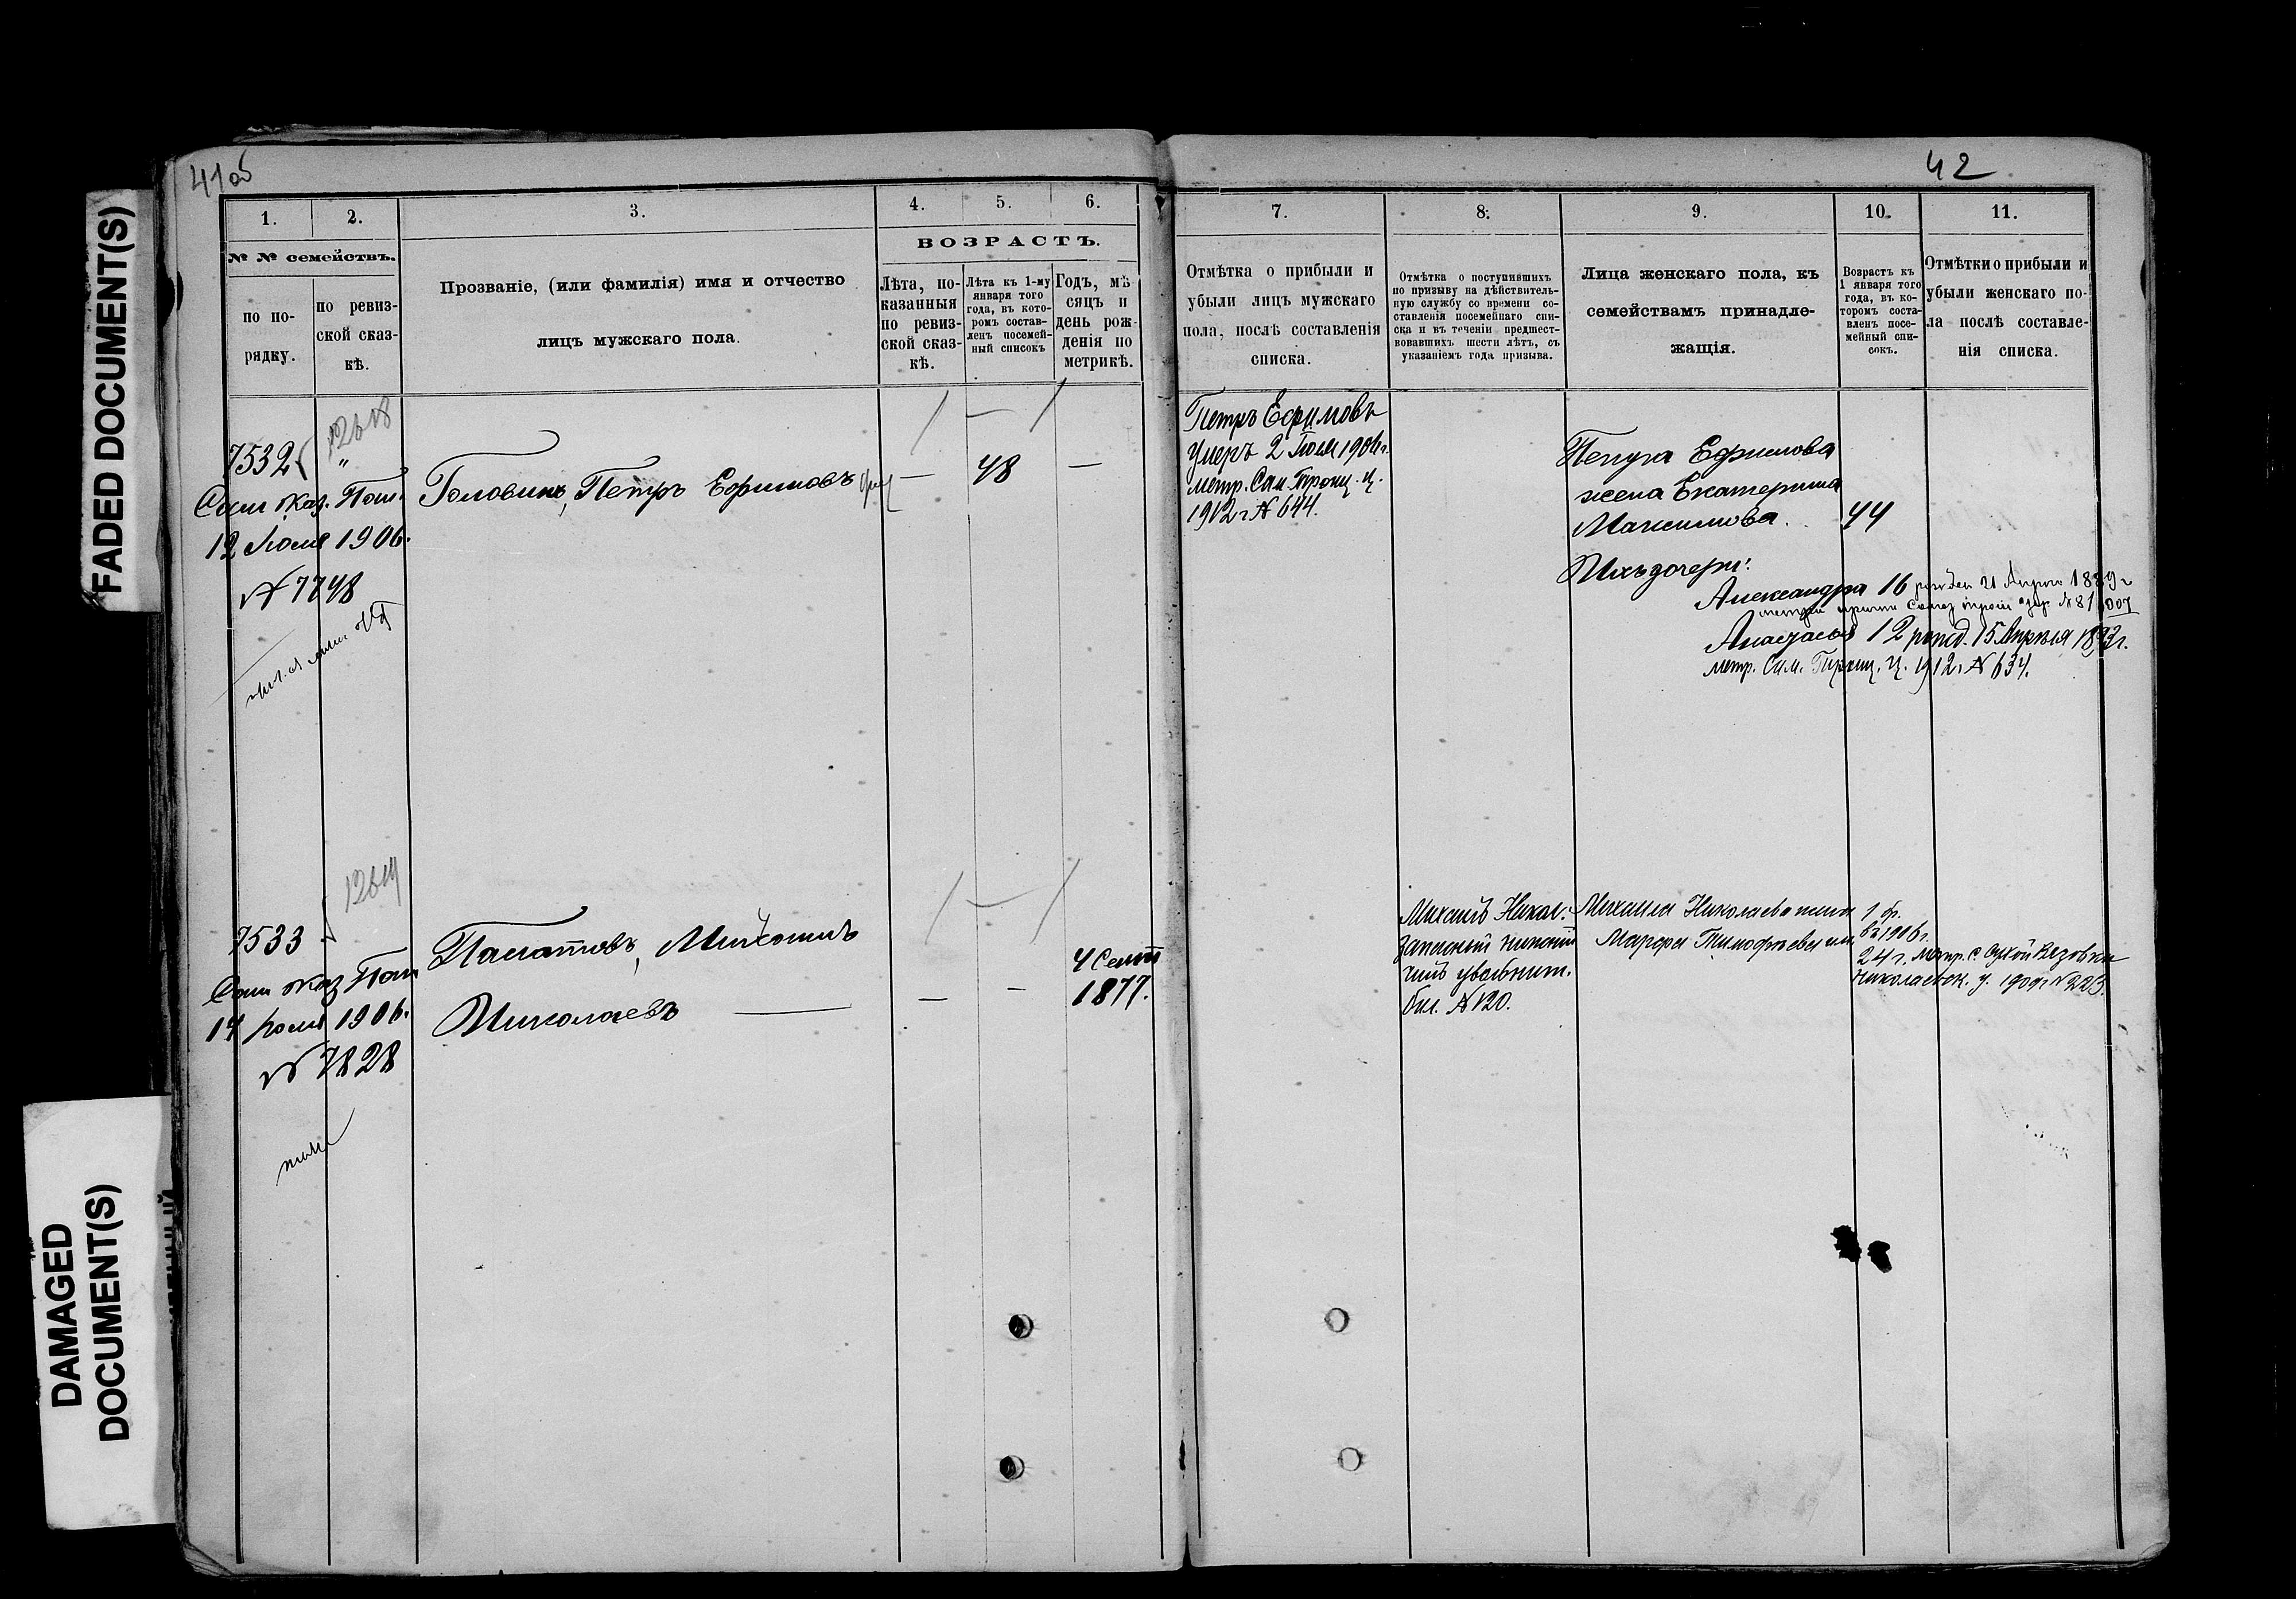 FADED DOCUMENT(S)
DAMAGED
DOCUMENT(S)
41об
42
1.
2.
3.
4.
5.
6.
№ № семействъ.
по по-
рядку.
по ревиз-
ской сказ-
кѣ.
Прозваніе, (или фамилія) имя и отчество
лицъ мужскаго пола.
ВОЗРАСТЪ.
Лѣта, по-
казанныя
по ревиз-
ской сказ-
кѣ.
Лѣта къ 1-му
января того
года, въ кото-
ромъ состав-
ленъ посемей-
ный списокъ
Годъ, мѣ-
сяцъ и
день рож-
денія по
метрикѣ.
7.
8.
9.
10.
11.
Отмѣтка о прибыли и
убыли лицъ мужскаго
пола, послѣ составленія
списка.
Отмѣтка о поступившихъ
по призыву на дѣйствитель-
ную службу со времени со-
ставленія посемейнаго спи-
ска и въ теченіи предшест-
вовавшихъ шести лѣтъ, съ
указаніемъ года призыва.
Лица женскаго пола, къ
семействамъ принадле-
жащія.
Возрастъ къ
1 января того
года, въ ко-
торомъ соста-
вленъ посе-
мейный спи-
сокъ.
Отмѣтки о прибыли и
убыли женскаго по-
ла послѣ составле-
нія списка.
12618
7532 "
Сам. Каз. Пал.
12 Іюля 1906.
№ 7748
Головинъ, Петръ Ефимовъ
— 48 —
Петръ Ефимовъ
умеръ 2 Іюля 1906 г.
метр. Сам. Троиц. ц.
1912 г № 644.
Петра Ефимова
жена Екатерина
Максимова. 44
Ихъ дочери:
Александра 16 рожден 21 Апрѣл 1889 г
Анастасья 12 рожд. 15 Апрѣля 1893 г.
метр. Сам. Троиц. ц. 1912 г № 634.
12619
7533
Сам Каз Пал
14 Іюля 1906.
№ 7828
Палатовъ, Михаилъ
Николаевъ
— — 4 Сент
1877.
Михаилъ Никол.
запасный нижній
чинъ увольнит.
бил. № 120.
Михаила Николаева жена
Марфа Тимофѣева
1 бр.
въ 1906 г.
24 г. Метр. с. Сухой Вязовки
Николаевск. у. 1909 г № 223.